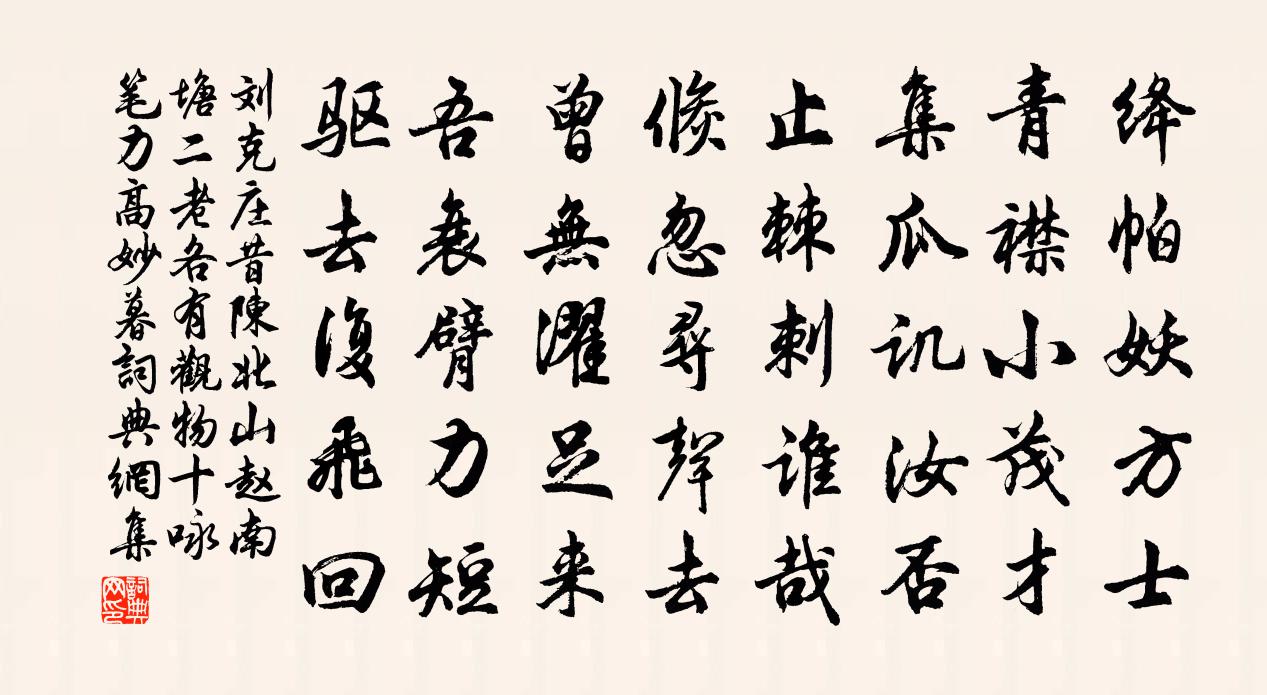 绛帕妖方士
青襟小茂才
集瓜讥汝否
止棘刺谁哉
倏忽尋聲去
曾無濯足来
吾衰臂力短
驱去復飛回
刘克庄昔陳北山赵南
塘二老各有觀物十咏
笔力高妙暮詞典網集
詞典网印